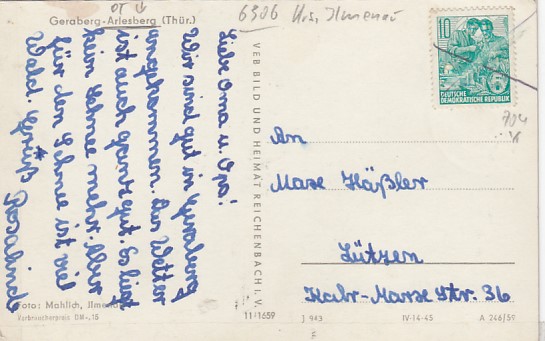 Geraberg-Arlesberg (Thür.)
OT
6306 Krs. Ilmenau
Liebe Oma u. Opa!
Wir sind gut in Geraberg
angekommen. Das Wetter
ist auch ganz gut. Es liegt
kein Schnee mehr. Aber
für den Schnee ist viel
Wald. Gruß
VEB BILD UND HEIMAT REICHENBACH I. V.
10
DEUTSCHE
DEMOKRATISCHE REPUBLIK
An
Max Häßler
Lützen
Karl-Marx Str. 36
Foto: Mahlich, Ilmenau
Verbraucherpreis DM -,15
11/1659
J 943
IV-14-45
A 246/59